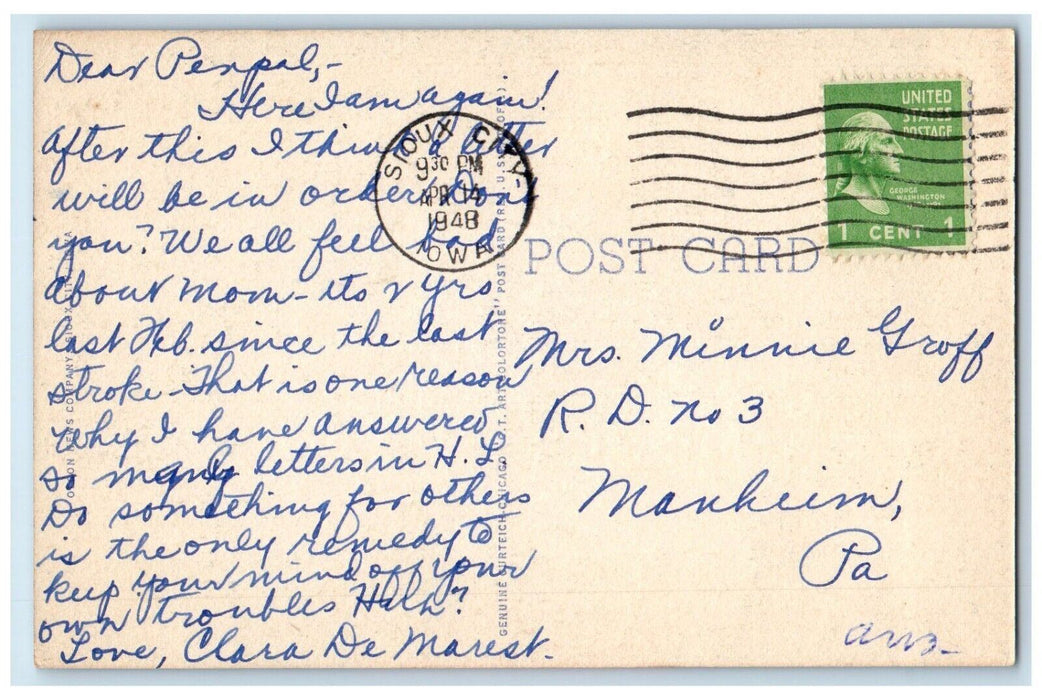 Dear Penpal,-
Here I am again!
After this I think a letter
will be in order. Don't
you? We all feel bad
about Mom - its 2 yrs
last Feb. since the last
stroke - That is one reason
why I have answered
so many letters in H. L.
Do something for others
is the only remedy to
keep your mind off your
own troubles Huh?
Love, Clara De Marest.
SIOUX CITY
9 30 PM
APR 14
1948
IOWA
UNITED
STATES
POSTAGE
GEORGE
WASHINGTON
1 CENT 1
POST CARD
Mrs. Minnie Groff
R. D. no 3
Manheim,
Pa
ans.
GENUINE CURTEICH-CHICAGO "C.T. ART-COLORTONE" POST CARD (REG. U.S. PAT. OFF.)
NEWS COMPANY, SIOUX